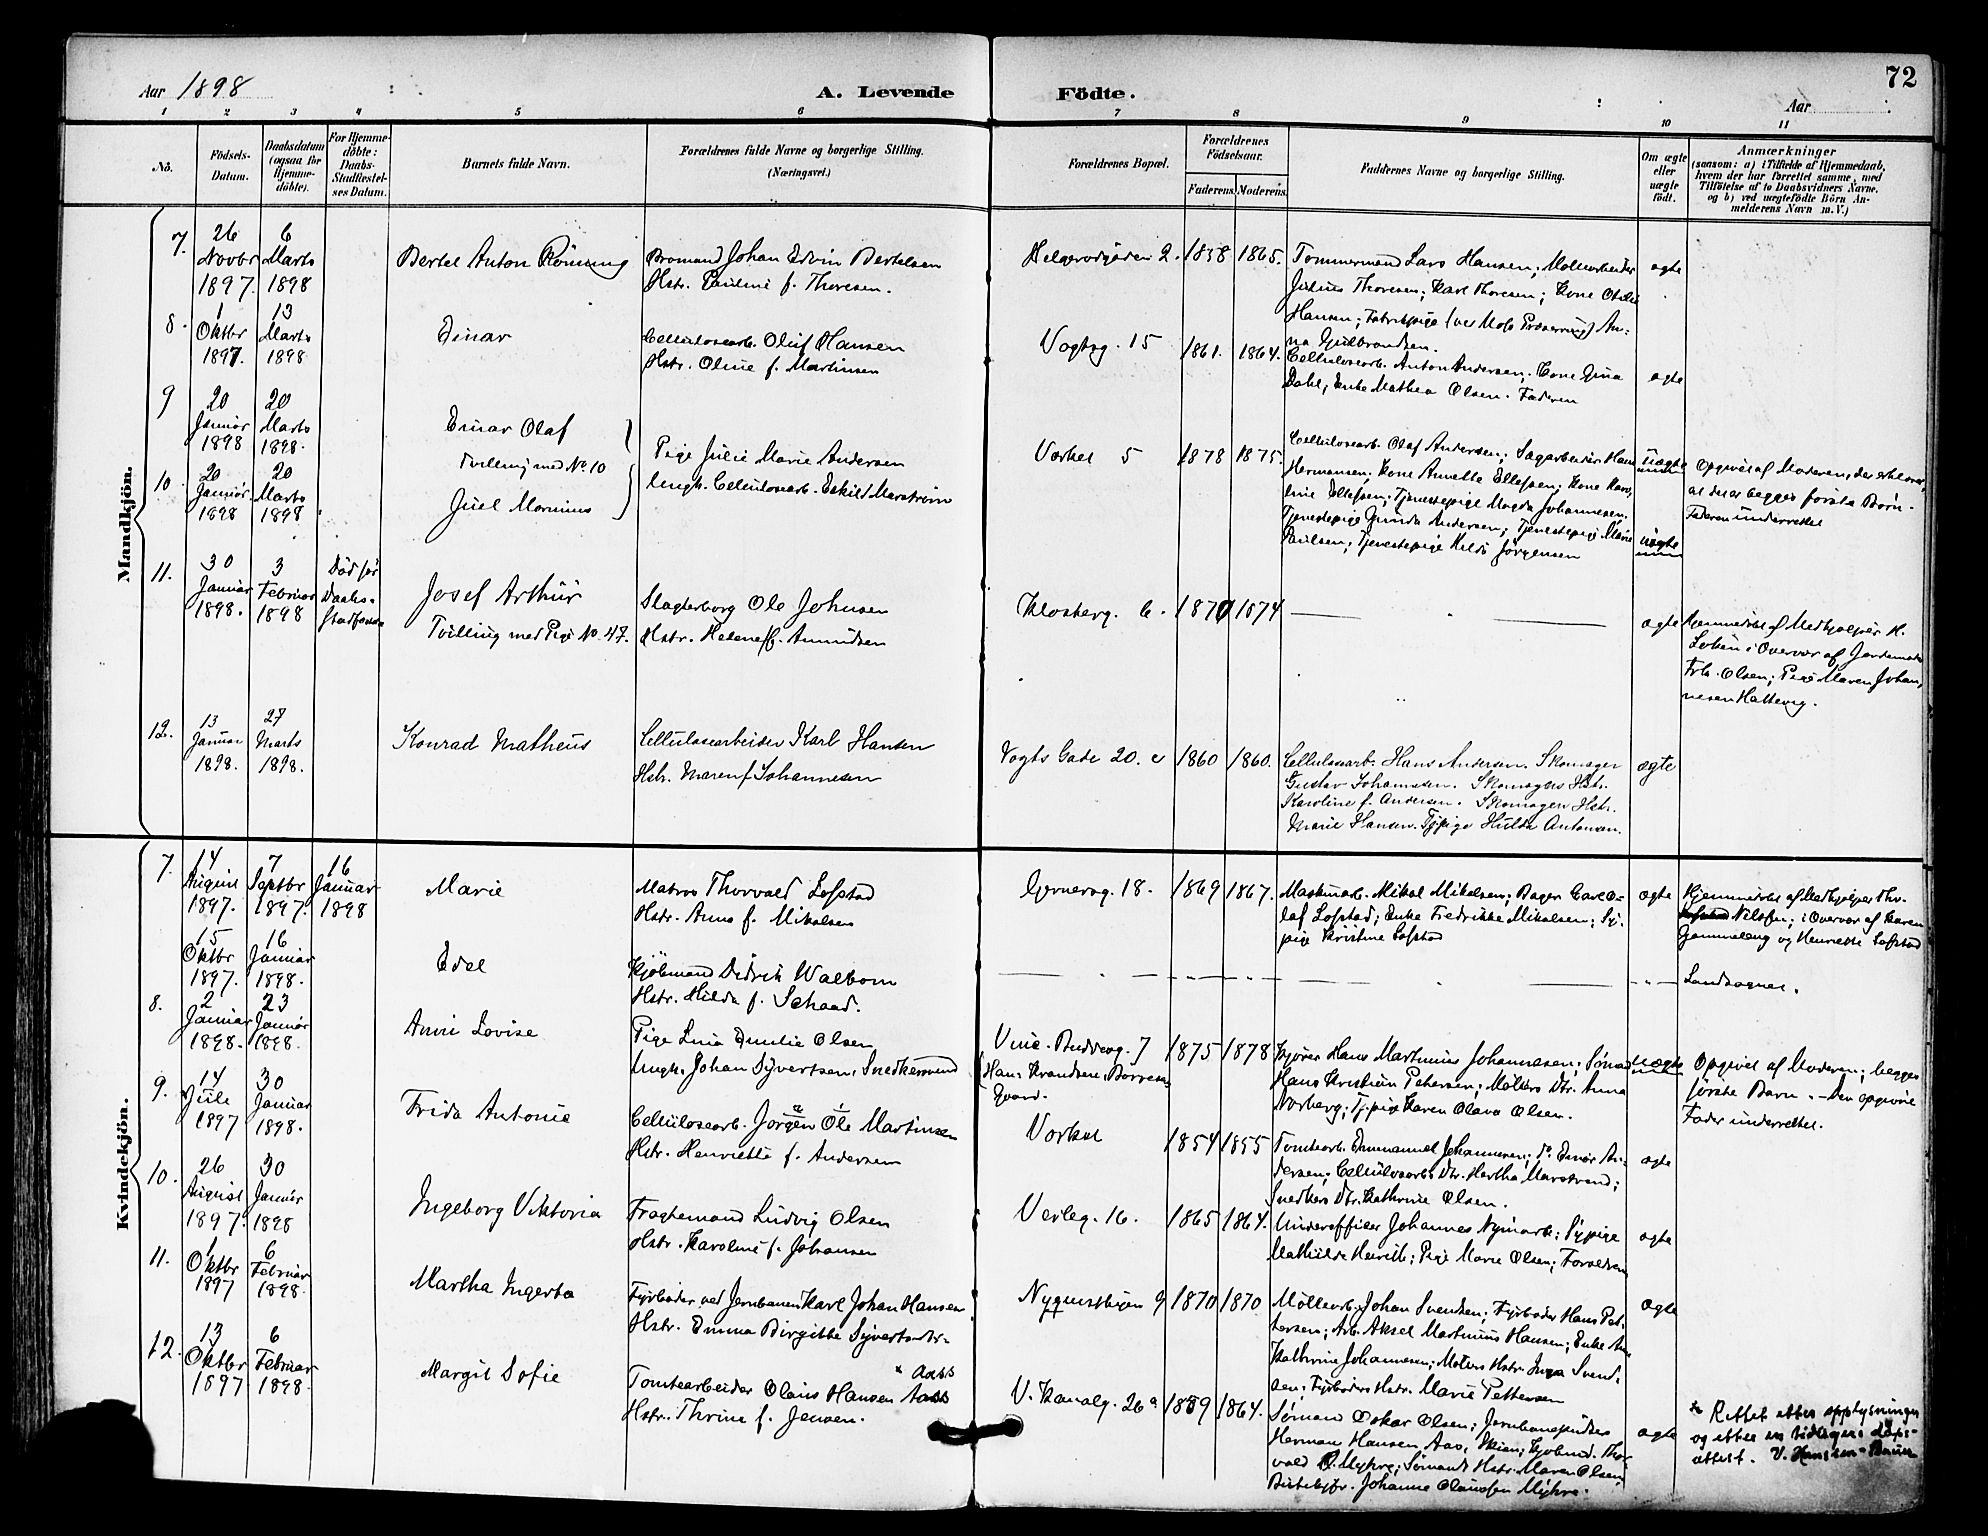 Aar 1898
A. Levende Födte.
72
Aar
1 2 3 4 5 6 7 8 9 10 11
No.
Födsels-Datum.
Daabsdatum (ogsaa for Hjemmedöbte).
For Hjemmedöbte: Daabs-Stadfæstelses Datum.
Barnets fulde Navn.
Forældrenes fulde Navne og borgerlige Stilling. (Næringsvei.)
Forældrenes Bopæl.
Forældrenes Födselsaar.
Faderens. Moderens.
Faddernes Navne og borgerlige Stilling.
Om ægte eller uægte födt.
Anmærkninger
(saasom: a) i Tilfælde af Hjemmedaab, hvem der har forrettet samme, med Tilföielse af to Daabsvidners Navne, og b) ved uægtefödte Börn Anmelderens Navn m. V.)
Mandkjön.
7. 26 Novbr 1897. 6 Marts 1898
Bertel Anton Rönning
Bromand Johan Edvin Bertelsen
Hstr. Pauline f. Thoresen.
1838 1865.
Tommermand Lars Hansen; Mollearbeider
Julius Thoresen; Karl Thoresen; Kone
Hansen; Fabrikpige
na Gulbrandsen.
ægte
8. 1 Oktbr 1897. 13 Marts 1898
Einar
Cellulosearb. Oluf Hansen
Hstr. Oline f. Martinsen
Vogtsg. 15
1861. 1864.
Cellulosearb. Anton Andersen; Kone Gina
Dahl; Enke Mathea Olsen. Faderen
ægte
9 20 Januar 1898 20 Marts 1898.
Einar Olaf
Tvilling med No. 10
10. 20 Januar 1898 20 Marts 1898
Juel Marinius
Pige Julie Marie Andersen
Ungk. Cellulosearb. Eskild Marstrøm
Vorkel 5
1878 1875.
Cellulosearb. Olaf Andersen; Sagarbeider Hans
Hermansen; Kone Annette Ellefsen; Kone Karo-
line Ellefsen; Tjenestepige Magda Johannesen;
Tjenestepige Gunda Andersen; Tjenestepige Marie
Paulsen; Tjenestepige Hilda Jörgensen
Uægte
uægte
Opgivet af Moderen, der erklærer,
at det er begges første Børn.
Faderen underrettet
11. 30 Januar 1898. 3 Februar 1898
Död før Daabs-
Josef Arthur
Tvilling med Pige No. 47.
Slagterborg Ole Johnsen
Hstr. Helene f. Amundsen
Klosterg. 6.
1870 1874
ægte
Hjemmedöbt af Medhjælper K.
Løken i Overvær af Jordemoder
Frk. Olsen; Pige Maren Johan-
nesen Hattevig.
12. 13 Januar 1898. 27 Marts 1898.
Konrad Matheus
Cellulosearbeider Karl Hansen
Hstr. Maren f. Johannesen
Vogts Gade 20. c
1860 1860.
Cellulosearb. Hans Andersen. Skomager
Gustav Johannesen. Skomagers Hstr.
Karoline f. Andersen. Skomagers Hstr.
Marie Hansen. Tj.pige Hulda Antonsen.
ægte
Kvindekjön.
7. 14 August 1897. 7 Septbr 1897. 16 Januar 1898
Marie
Matros Thorvald Lofstad
Hstr. Anna f. Mikalsen
18.
1869 1867.
Maskinarb. Mikal Mikalsen; Bager Carl O-
laf Lofstad; Enke Fredrikke Mikalsen; Sy-
pige Kristine Lofstad
ægte
Hjemmedöbt af Medhjælper Th.
Nilssen; i Overvær af Karen
Gammelsug og Henriette Lofstad
15 Oktbr 1897. 16 Januar 1898.
Edel
Kjøbmand Didrik Walbom
Hstr. Hilda f. Schaad.
Landsognet.
8. 2 Januar 1898. 23 Januar 1898.
Anni Lovise
Pige Lina Emilie Olsen
Ungk. Johan Syvertsen, Snedkersvend
7
1875 1878
Kjører Hans Martinius Johannesen; Sømand
Hans Kristian Petersen; Molers Dtr. Anna
Norberg; Tj.pige Karen Olava Olsen.
Uægte
Opgivet af Moderen; begges
første Barn. — Den opgivne
Fader underrettet.
9. 14 Juli 1897 30 Januar 1898.
Frida Antonie
Cellulosearb. Jørgen Ole Martinsen
Hstr. Henriette f. Andersen
Vorkel
1854 1855
Tomtearb. Emmanuel Johannesen; Do. Einar An-
dersen; Cellulosearbs Dtr. Hertha Marstrand;
Snedkers Dtr. Kathrine Olsen.
ægte
10. 26 August 1897. 30 Januar 1898
Ingeborg Viktoria
Fragtemand Ludvig Olsen
Hstr. Karoline f. Johansen
Verleg. 16.
1865 1864.
Underofficer Johannes Nymark; Sypige
Mathilde Henrik; Pige Marie Olsen; Forældrene
ægte
11. 1 Oktbr 1897 6 Februar 1898.
Martha Ingerta
Fyrbøder ved Jernbanen Karl Johan Hansen
Hstr. Emma Birgitte Syvertsdtr.
9
1870 1870
Möllearb. Johan Svendsen; Fyrbøder Hans Pet-
tersen; Arb. Aksel Martinius Hansen; Enke
Kathrine Johannesen; Molers Hstr. Inga Svend-
sen; Fyrbøders Hstr. Marie Pettersen
ægte
12. 13 Oktbr 1897 6 Februar 1898.
Margit Sofie
Tomtearbeider Olaus Hansen Aass
* Aass
Hstr. Thrine f. Jensen.
V. Kanalg. 26a
1859 1864.
Sømand Oskar Olsen; Jernbanesnedker
Herman Hansen Aas, Skien; Kjøbmd. Thor-
vald O. Myhre; Sømands Hstr. Maren Olsen;
Johanne Olausen Myhre.
ægte
* Rettet etter opplysninger
og etter en tidligere dåps-
attest. V. Hanssen-Bauer